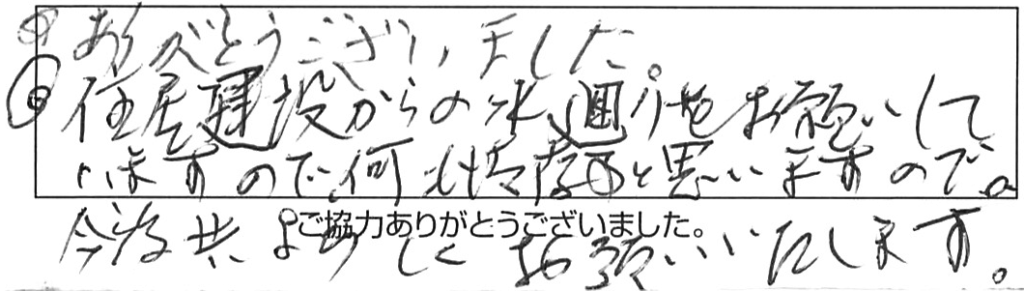 ありがとうございました。
住居建設からの水廻りをお願いして
いますので、何 と思いますので。
今後共よろしくお願いいたします。
ご協力ありがとうございました。